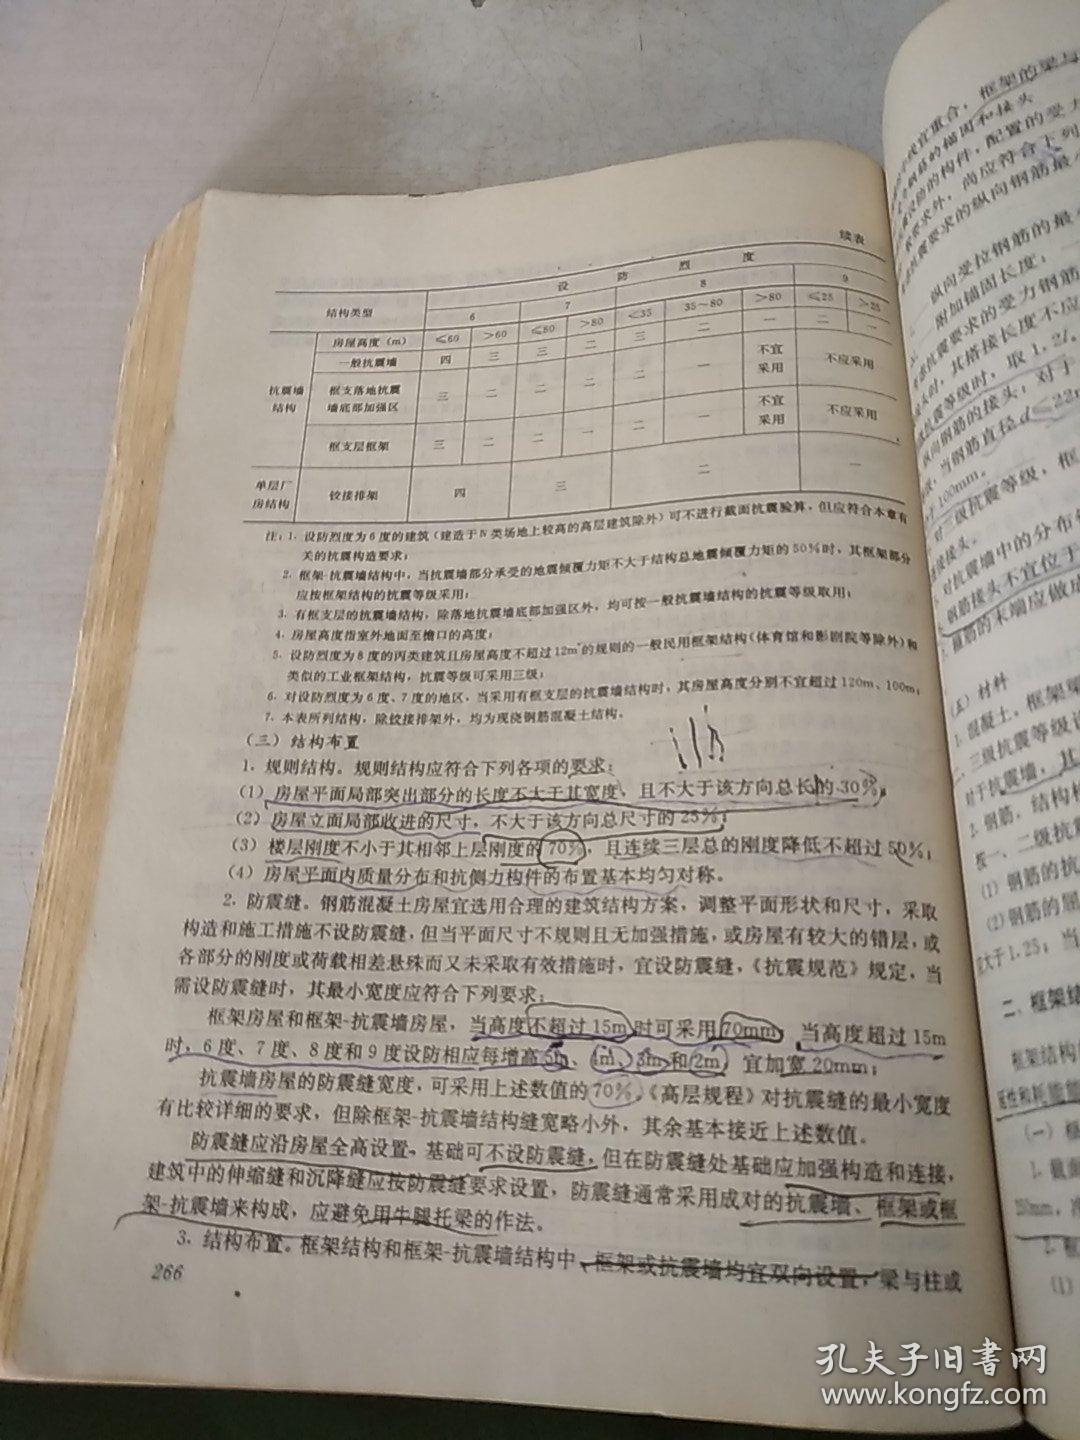 续表
设 防 烈 度
结构类型 6 7 8 9
房屋高度（m） ≤60 >60 ≤80 >80 <35 35～80 >80 ≤25 >25
抗震墙结构
一般抗震墙 四 三 三 二 三 二 一 二 一
框支落地抗震墙底部加强区 三 二 二 二 二 一 不宜采用 不应采用
框支层框架 三 二 二 一 二 一 不宜采用 不应采用
单层厂房结构 铰接排架 四 三 二 一
注：1. 设防烈度为6度的建筑（建造于Ⅳ类场地上较高的高层建筑除外）可不进行截面抗震验算，但应符合本章有
关的抗震构造要求；
2. 框架-抗震墙结构中，当抗震墙部分承受的地震倾覆力矩不大于结构总地震倾覆力矩的50%时，其框架部分
应按框架结构的抗震等级采用；
3. 有框支层的抗震墙结构，除落地抗震墙底部加强区外，均可按一般抗震墙结构的抗震等级取用；
4. 房屋高度指室外地面至檐口的高度；
5. 设防烈度为8度的丙类建筑且房屋高度不超过12m的规则的一般民用框架结构（体育馆和影剧院等除外）和
类似的工业框架结构，抗震等级可采用三级；
6. 对设防烈度为6度、7度的地区，当采用有框支层的抗震墙结构时，其房屋高度分别不宜超过120m、100m；
7. 本表所列结构，除铰接排架外，均为现浇钢筋混凝土结构。
（三）结构布置
1. 规则结构。规则结构应符合下列各项的要求：
（1）房屋平面局部突出部分的长度不大于其宽度，且不大于该方向总长的30%；
（2）房屋立面局部收进的尺寸，不大于该方向总尺寸的25%；
（3）楼层刚度不小于其相邻上层刚度的70%，且连续三层总的刚度降低不超过50%；
（4）房屋平面内质量分布和抗侧力构件的布置基本均匀对称。
2. 防震缝。钢筋混凝土房屋宜选用合理的建筑结构方案，调整平面形状和尺寸，采取
构造和施工措施不设防震缝，但当平面尺寸不规则且无加强措施，或房屋有较大的错层，或
各部分的刚度或荷载相差悬殊而又未采取有效措施时，宜设防震缝，《抗震规范》规定，当
需设防震缝时，其最小宽度应符合下列要求：
框架房屋和框架-抗震墙房屋，当高度不超过15m时可采用70mm，当高度超过15m
时，6度、7度、8度和9度设防相应每增高5m、4m、3m和2m，宜加宽20mm；
抗震墙房屋的防震缝宽度，可采用上述数值的70%。《高层规程》对抗震缝的最小宽度
有比较详细的要求，但除框架-抗震墙结构缝宽略小外，其余基本接近上述数值。
防震缝应沿房屋全高设置，基础可不设防震缝，但在防震缝处基础应加强构造和连接，
建筑中的伸缩缝和沉降缝应按防震缝要求设置，防震缝通常采用成对的抗震墙、框架或框
架-抗震墙来构成，应避免用牛腿托梁的作法。
3. 结构布置。框架结构和框架-抗震墙结构中，框架或抗震墙均宜双向设置，梁与柱或
266
宜重合，框架的梁与
筋的锚固和接头
设防的构件，配置的受力
要求外，尚应符合下列
抗震要求的纵向钢筋最
纵向受拉钢筋的最
附加锚固长度；
抗震要求的受力钢筋
头时，其搭接长度不应
抗震等级时，取1.2l
纵向钢筋的接头：对于
当钢筋直径d≤22m
100mm。
三级抗震等级，框
对抗震墙中的分布
钢筋接头不宜位于
箍筋的末端应做成
（五）材料
1. 混凝土，框架梁
三级抗震等级
对于抗震墙，其
2. 钢筋，结构构
一、二级抗震
（1）钢筋的抗
（2）钢筋的屈
大于1.25；当
二、框架结
框架结构
延性和耗能
（一）框
1. 截面
（1）
孔夫子旧書网
www.kongfz.com